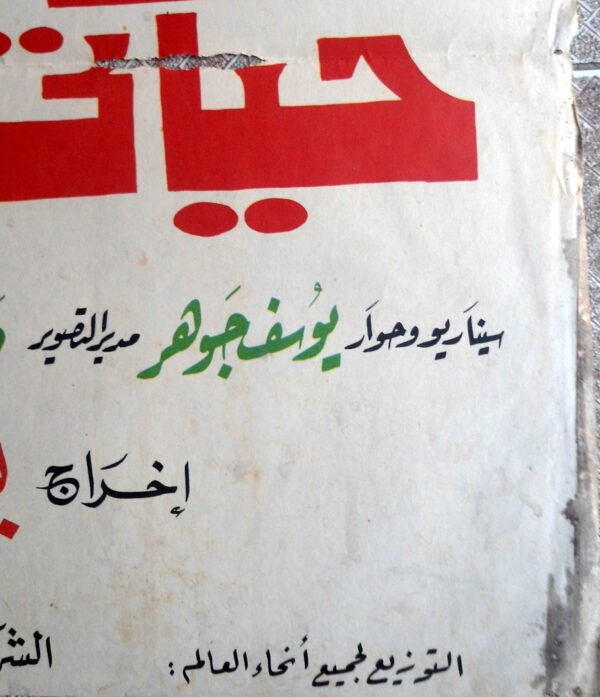 حياتي
سيناريو وحوار يوسف جوهر مدير التصوير
إخراج
التوزيع لجميع أنحاء العالم :